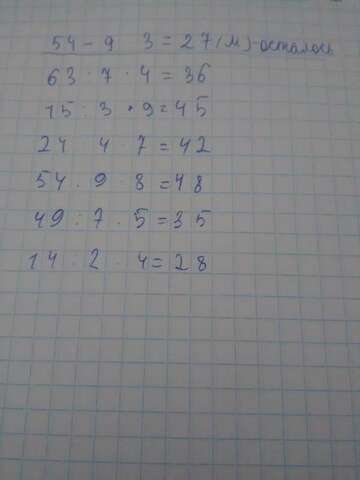 54 - 9 · 3 = 27 (м) - осталось
63 : 7 · 4 = 36
15 : 3 · 9 = 45
24 : 4 · 7 = 42
54 : 9 · 8 = 48
49 : 7 · 5 = 35
14 : 2 · 4 = 28